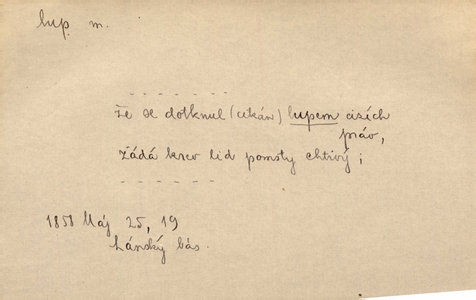 lup m.
- - - - - - -
že se dotknul (cikán) lupem cizích
práv,
žádá krev lid pomsty chtivý;
- - - - - -
1858 Máj 25, 19
Lánský bás.